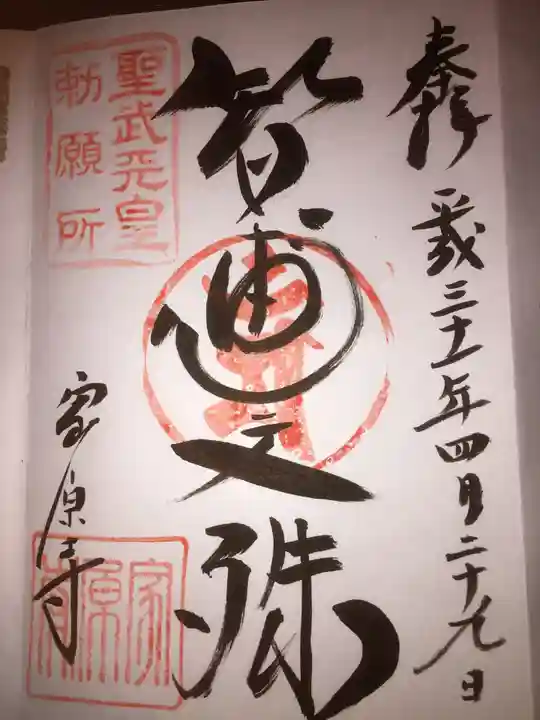 奉拝 平成三十一年四月二十九日
智恵文殊
家原寺
聖武天皇
勅願所
家原寺